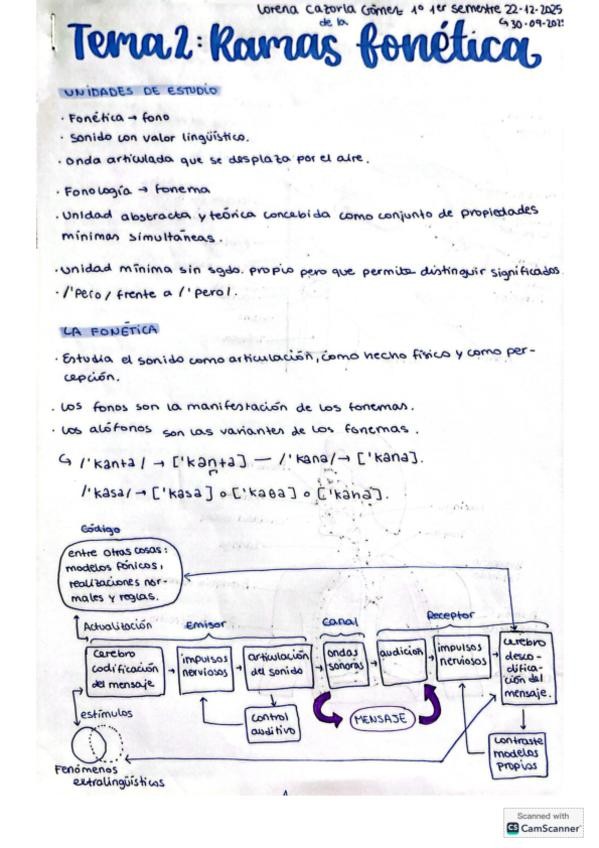 Lorena Cazorla Gómez 1º 1er semestre 22-12-2025
↳ 30-09-202
Tema 2: Ramas de la fonética
UNIDADES DE ESTUDIO
· Fonética → fono
· Sonido con valor lingüístico.
· Onda articulada que se desplaza por el aire.
· Fonología → Fonema
· Unidad abstracta y teórica concebida como conjunto de propiedades
mínimas simultáneas.
· Unidad mínima sin sgdo. propio pero que permite distinguir significados
· /'Pero/ frente a /'pero/.
LA FONÉTICA
· Estudia el sonido como articulación, como hecho físico y como per-
cepción.
· Los fonos son la manifestación de los fonemas.
· Los alófonos son las variantes de los fonemas.
↳ /'kanta/ → ['kan̪ta] — /'kana/ → ['kana].
/'kasa/ → ['kasa] o ['kaθa] o ['kaha].
Código
entre otras cosas:
modelos fónicos,
realizaciones nor-
males y reglas.
Actualización
Emisor
Canal
Receptor
Cerebro
codificación
del mensaje
impulsos
nerviosos
articulación
del sonido
ondas
sonoras
audición
impulsos
nerviosos
Cerebro
desco-
difica-
ción del
mensaje.
estímulos
control
auditivo
MENSAJE
contraste
modelos
propios
Fenómenos
extralingüísticos
Scanned with
CS CamScanner